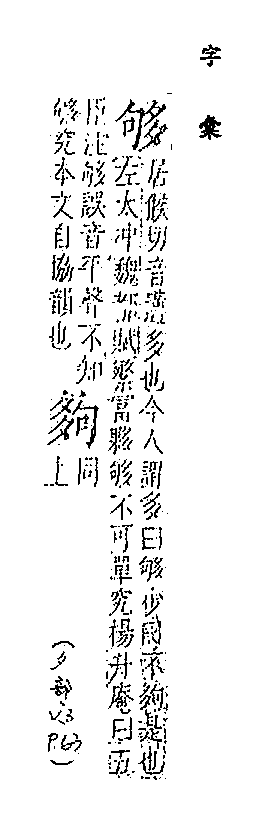 字彙
够
居候切音遘多也今人謂多曰够少曰不夠是也
左太冲魏都賦繁富夥够不可單究楊升庵曰五
臣注够誤音平聲不知
够究本文自協韻也
夠
同
上
(夕部 V.3 P.63)